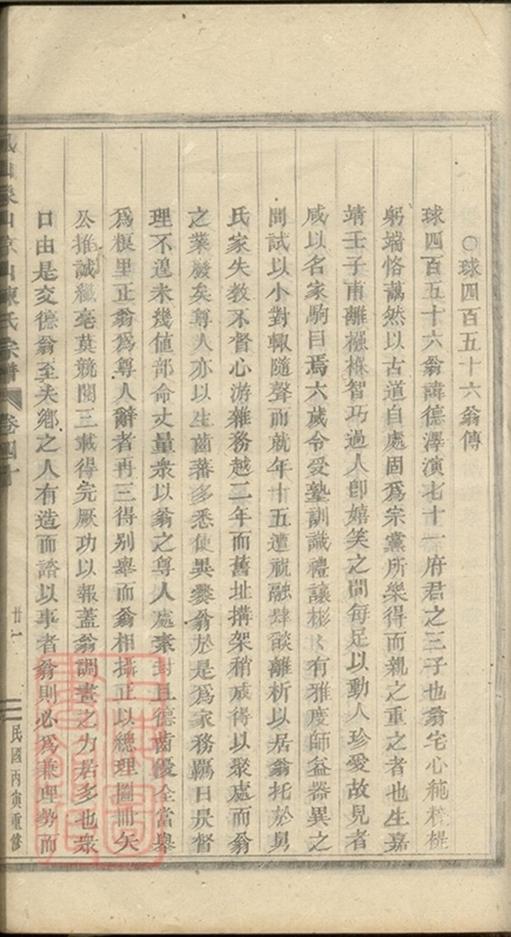 ○球四百五十六翁傳
球四百五十六翁諱德澤演七十一府君之三子也翁宅心純樸褆
躬端恪藹然以古道自處固爲宗黨所樂得而親之重之者也生嘉
靖壬子甫離襁褓智巧過人卽嬉笑之間每足以動人珍愛故見者
咸以名家駒目焉六歲令受塾訓識禮讓彬彬有雅度師益器異之
間試以小對輒隨聲而就年十五遭祝融肆燄離析以居翁托於舅
氏家失教不督心游雜務越二年而舊址搆架稍成得以聚處而翁
之業廢矣尊人亦以生齒蕃多悉使異爨翁於是爲家務羈日昃督
理不遑未幾値部命丈量衆以翁之尊人處素封且德齒優全當舉
爲椱里正翁爲尊人辭者再三得别舉而翁相攝正以總理圖冊矢
公推誠纖毫莫競閱三載得完厥功以報蓋翁調畫之力居多也衆
口由是交德翁至夫鄉之人有造而諮以事者翁則必爲兼理勢而
陳氏宗譜
卷四十
廿一
民國丙寅重修